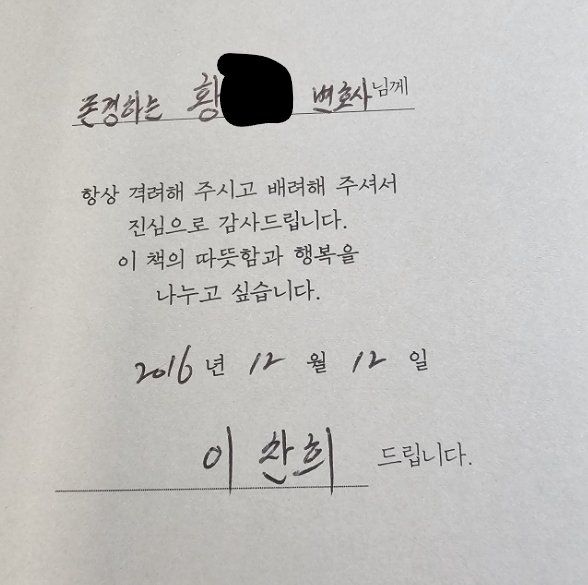 존경하는 황 변호사님께
항상 격려해 주시고 배려해 주셔서
진심으로 감사드립니다.
이 책의 따뜻함과 행복을
나누고 싶습니다.
2016년 12월 12일
이찬희 드립니다.